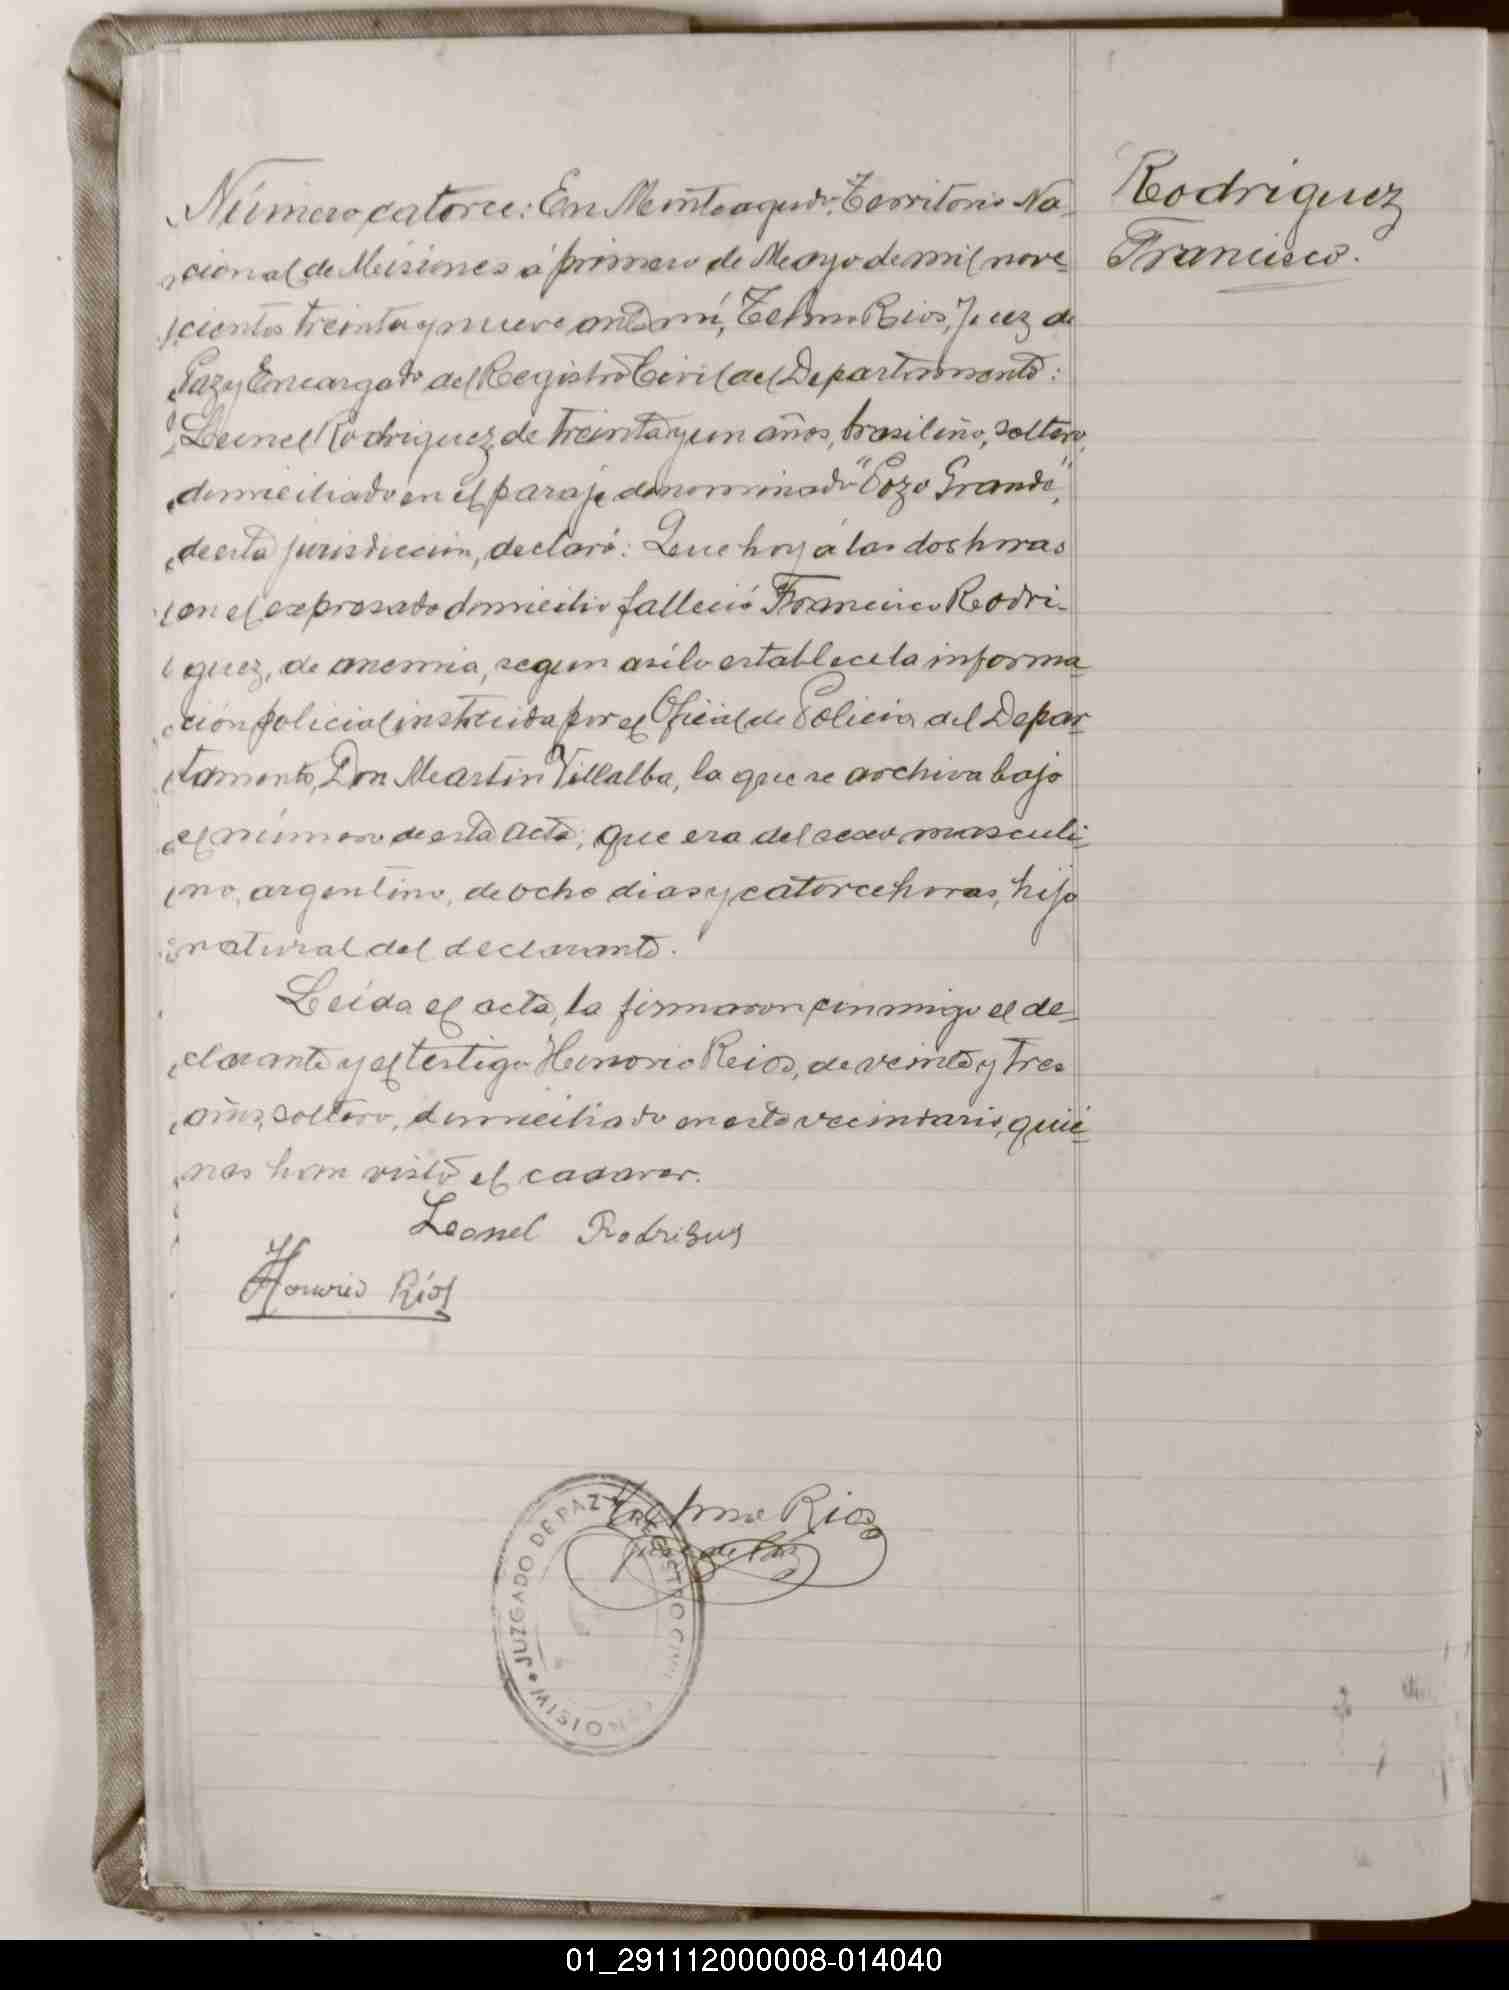 Número catorce: En Monteagudo, Territorio Na-
cional de Misiones á primero de Mayo de mil nove-
cientos treinta y nueve ante mí, Telmo Rios, Juez de
Paz y Encargado del Registro Civil del Departamento:
Leonel Rodriguez, de treinta y un años, brasileño, soltero,
domiciliado en el paraje denominado "Pozo Grande",
de esta jurisdiccion, declaró: Que hoy á las dos horas
en el expresado domicilio falleció Francisco Rodri-
guez, de anemia, segun asílo establece la informa-
ción policial instruida por el Oficial de Policia del Depar-
tamento, Don Martin Villalba, la que se archiva bajo
el número de esta acta; que era del sexo masculi-
no, argentino, de ocho dias y catorce horas, hijo
natural del declarante.
Leída el acta, la firmaron conmigo el de-
clarante y el testigo Honorio Rios, de veinte y tres
años, soltero, domiciliado en este vecindario, quié-
nes han visto el cadaver.
Leonel Rodrigues
Honorio Ríos
Telmo Rios
Juez de Paz
JUZGADO DE PAZ Y REGISTRO CIVIL
MISIONES
Rodriguez
Francisco.
01_291112000008-014040